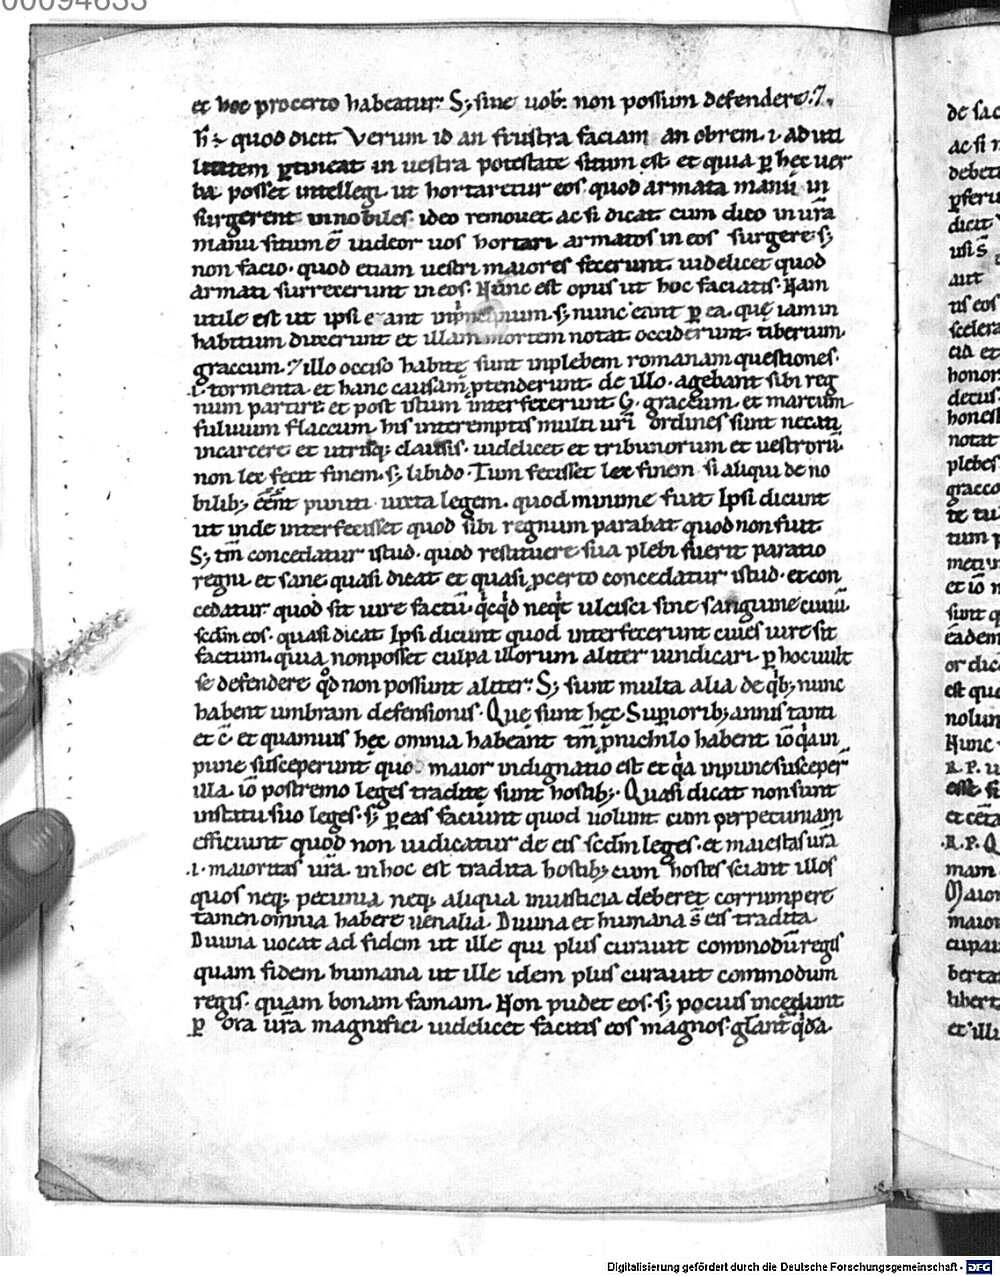 00094633
et hoc procerto habeatur. S; sine uob̄. non possum defendere.⁊.
h̄ ÷ quod dicit. Verum id an frustra faciam an obrem .i. ad uti
litatem ꝑtineat in uestra potestate situm est et quia ꝑ hec uer
ba posset intellegi ut hortaretur eos quod armata manu in
surgerent in nobiles. ideo remouet ac si dicat cum dico in ur̄a
manu situm ē uideor uos hortari armatos in eos surgere s;
non facio. quod etiam uestri maiores fecerunt. uidelicet quod
armati surrexerunt in eos. Nunc est opus ut hoc faciatis. Nam
utile est ut ipsi erant in principium. s; nunc eunt ꝑ ea. quę iam in
habitum duxerunt et illam mortem notat occiderunt. tiberium.
graccum. ⁊ illo occiso habitę sunt inplebem romanam questiones.
.i. tormenta. et hanc causam p̄tenderunt. de illo. agebant sibi reg
num partire. et post istum interfecerunt G. graccum. et marcum
fuluium flaccum. his interemptis multi uri ordines sunt necati
incarcere et utrisq; clausis. uidelicet et tribunorum et uestrorū
non lex fecit finem. s; libido. Tum fecisset lex finem si aliqui de no
bilib; eēnt puniti iuxta legem. quod minime fuit Ipsi dicunt
ut inde interfecisset quod sibi regnum parabat quod non fuit
S; tm̄ concedatur istud. quod restituere sua plebi fuerit paratio
regni. et sane quasi dicat et quasi ꝓcerto concedatur istud. et con
cedatur quod sit iure factū. qͥcqͥd neqͥt ulcisci sine sanguine ciuiū.
scdm̄ eos. quasi dicat Ipsi dicunt quod interfecerunt ciues iure sit
factum. quia nonposset culpa illorum aliter uindicari. ꝑ hoc uult
se defendere qͦd non possunt aliter. S; sunt multa alia de qͥb; nunc
habent umbram defensionis. Que sunt hęc Superiorib; annis tanti
et c̄ et quamuis hęc omnia habeant tm̄ p̄ nichilo habent iō qͥa in
pune susceperunt quo maior indignatio est et qͥa inpune susceper̄
illa. iō postremo leges traditę sunt hostib;. Quasi dicat non sunt
institui suo leges. s; ꝑ eas faciunt quod uolunt cum per pecuniam
efficiunt quod non iudicatur de eis scdm̄ leges. et maiestas ur̄a
.i. maioritas ur̄a. in hoc est tradita hostib; cum hostes sciant illos
quos neq; pecunia neq; aliqua iniusticia deberet corrumpere
tamen omnia habere uenalia. Diuina et humana s̄ eis tradita.
Diuina uocat ad fidem ut ille qui plus curauit commodū regis
quam fidem. humana ut ille idem plus curauit commodum
regis. quam bonam famam. Non pudet eos. s; pocius incedunt
ꝑ ora ur̄a magnifici uidelicet facitis eos magnos. glant̄ qͥda.
de sac
ac si n
debet
ꝑferu
dicit
usi s̄
aut
us eos
scelera
cia et
honor
decus.
honest
notat
plebes
gracco
te tu
tum p
metu
et iō n
sunt q
eadem
or dic
est qu
nolun
Nunc
R.P. u
est si
et cēta
.R.P. Q
mam
Maior
maior
cupau
bertat
libert
et illi
Digitalisierung gefördert durch die Deutsche Forschungsgemeinschaft - DFG